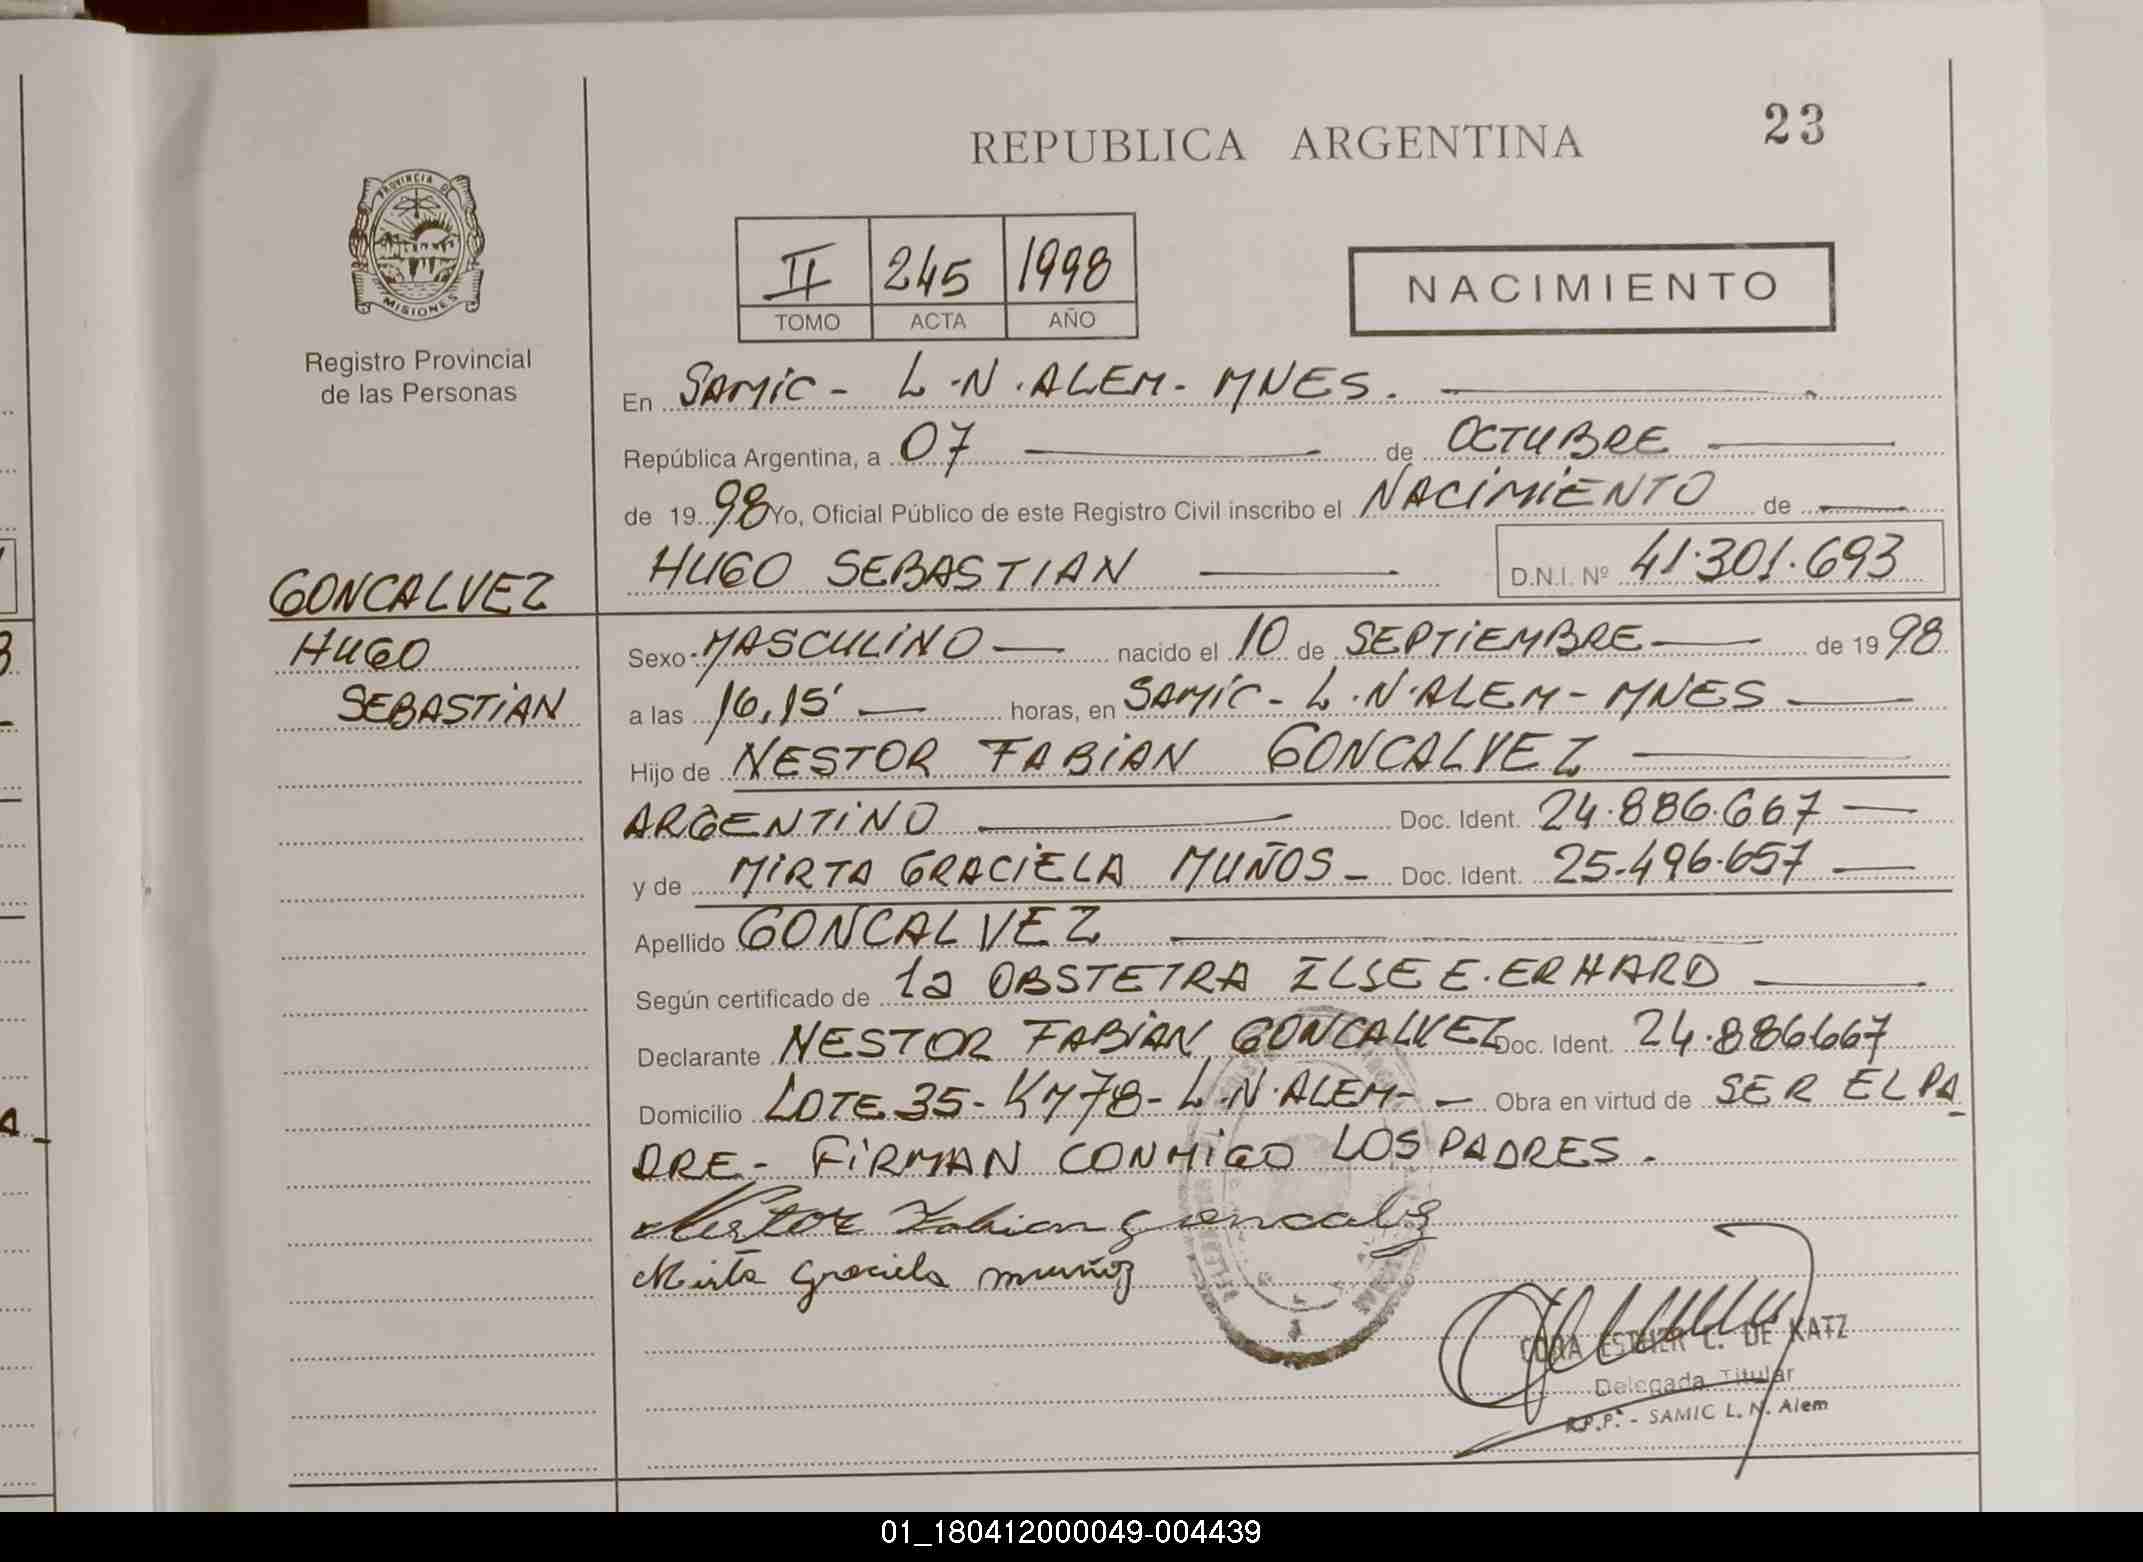 23
REPUBLICA ARGENTINA
PROVINCIA DE
MISIONES
Registro Provincial
de las Personas
II 245 1998
TOMO ACTA AÑO
NACIMIENTO
En SAMIC - L.N. ALEM - MNES.
República Argentina, a 07 de OCTUBRE
de 1998 Yo, Oficial Público de este Registro Civil inscribo el NACIMIENTO de
HUGO SEBASTIAN D.N.I. Nº 41.301.693
GONCALVEZ
HUGO
SEBASTIAN
Sexo MASCULINO nacido el 10 de SEPTIEMBRE de 1998
a las 16,15' horas, en SAMIC - L.N. ALEM - MNES
Hijo de NESTOR FABIAN GONCALVEZ
ARGENTINO Doc. Ident. 24.886.667
y de MIRTA GRACIELA MUÑOS - Doc. Ident. 25.496.657
Apellido GONCALVEZ
Según certificado de la OBSTETRA ILSE E. ERHARD
Declarante NESTOR FABIAN GONCALVEZ Doc. Ident. 24.886667
Domicilio LOTE 35 - KM78 - L.N. ALEM - Obra en virtud de SER EL PA
DRE - FIRMAN CONMIGO LOS PADRES.
Nestor Fabian Goncalvez
Mirta Graciela muñoz
CORA ESTHER C. DE KATZ
Delegada Titular
R.P.P. - SAMIC L. N. Alem
01_180412000049-004439